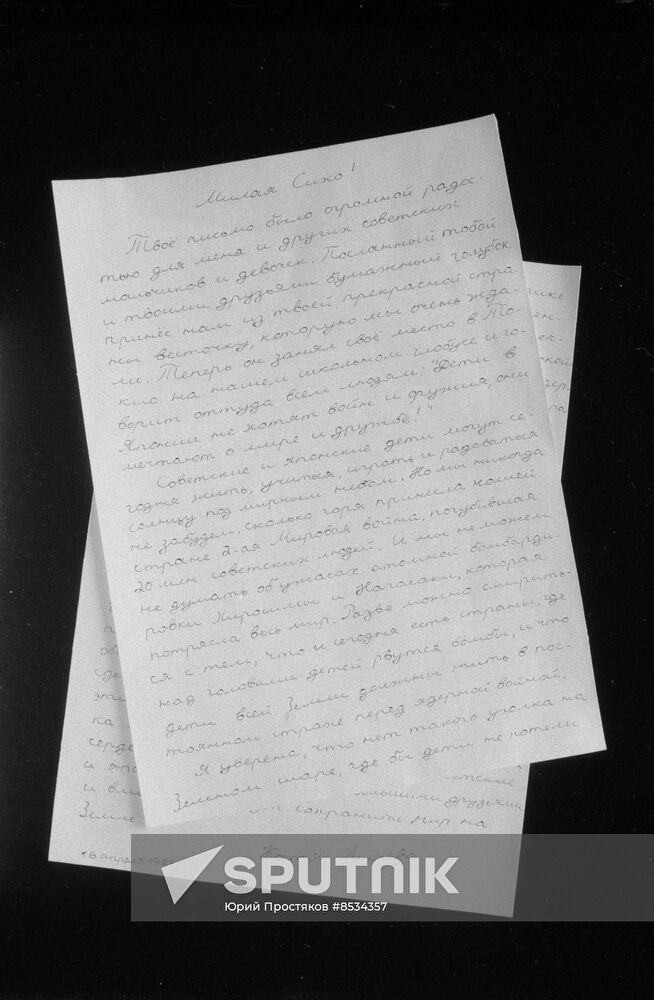 Милая Сихо!
Твоё письмо было огромной радос-
тью для меня и других советских
мальчиков и девочек. Посланный тобой
и твоими друзьями бумажный голубок
принёс нам из твоей прекрасной стра-
ны весточку, которую мы очень жда-
ли. Теперь он занял своё место в То-
кио на нашем школьном глобусе и го-
ворит оттуда всем людям: "Дети в
Японии не хотят войн и оружия, они
мечтают о мире и дружбе!"
Советские и японские дети могут се-
годня жить, учиться, играть и радоваться
солнцу под мирным небом. Но мы никогда
не забудем, сколько горя принесла нашей
стране 2-ая Мировая война, погубившая
20 млн советских людей. И мы не можем
не думать об ужасах атомной бомбарди-
ровки Хиросимы и Нагасаки, которая
потрясла весь мир. Разве можно смирить-
ся с тем, что и сегодня есть страны, где
над головами детей рвутся бомбы, и что
дети всей Земли должны жить в пос-
тоянном страхе перед ядерной войной.
Я уверена, что нет такого уголка на
Земном шаре, где бы дети не хотели
сохранить мир на
Земле
16 апреля
SPUTNIK
Юрий Простяков #8534357